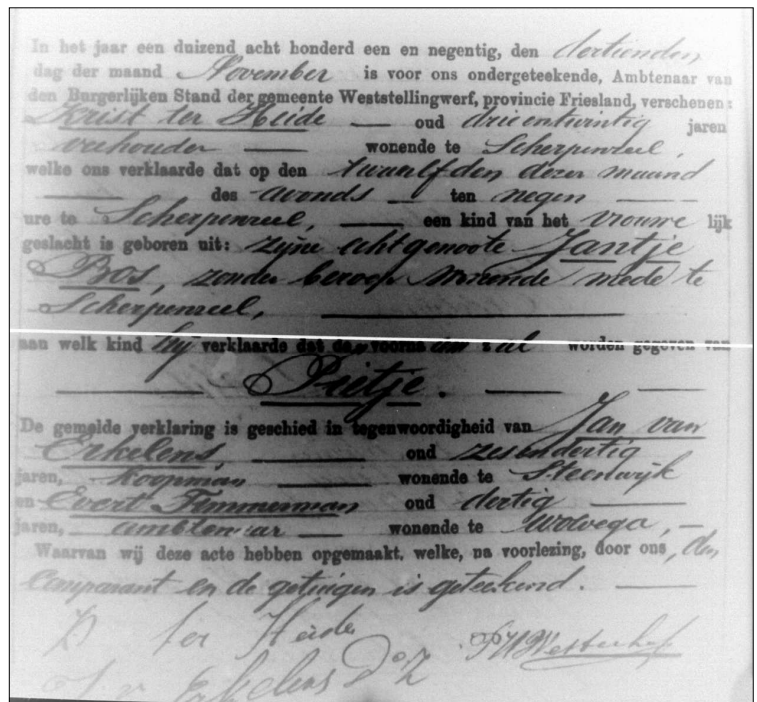 In het jaar een duizend acht honderd een en negentig, den dertienden
dag der maand November is voor ons ondergeteekende, Ambtenaar van
den Burgerlijken Stand der gemeente Weststellingwerf, provincie Friesland, verschenen:
Krist ter Heide oud drieentwintig jaren
veehouder wonende te Scherpenzeel,
welke ons verklaarde dat op den twaalfden dezer maand
des avonds ten negen
ure te Scherpenzeel, een kind van het vrouwe lijk
geslacht is geboren uit: zijne echtgenoote Jantje
Bos, zonder beroep wonende mede te
Scherpenzeel,
aan welk kind hij verklaarde dat de voorna am zal worden gegeven van
Pietje.
De gemelde verklaring is geschied in tegenwoordigheid van Jan van
Erkelens, oud zesendertig
jaren, koopman wonende te Steenwijk
en Evert Timmerman oud dertig
jaren, ambtenaar wonende te Wolvega,
Waarvan wij deze acte hebben opgemaakt, welke, na voorlezing, door ons, den
Comparant en de getuigen is geteekend.
ter Heide
J v Erkelens Dz
Westerhof